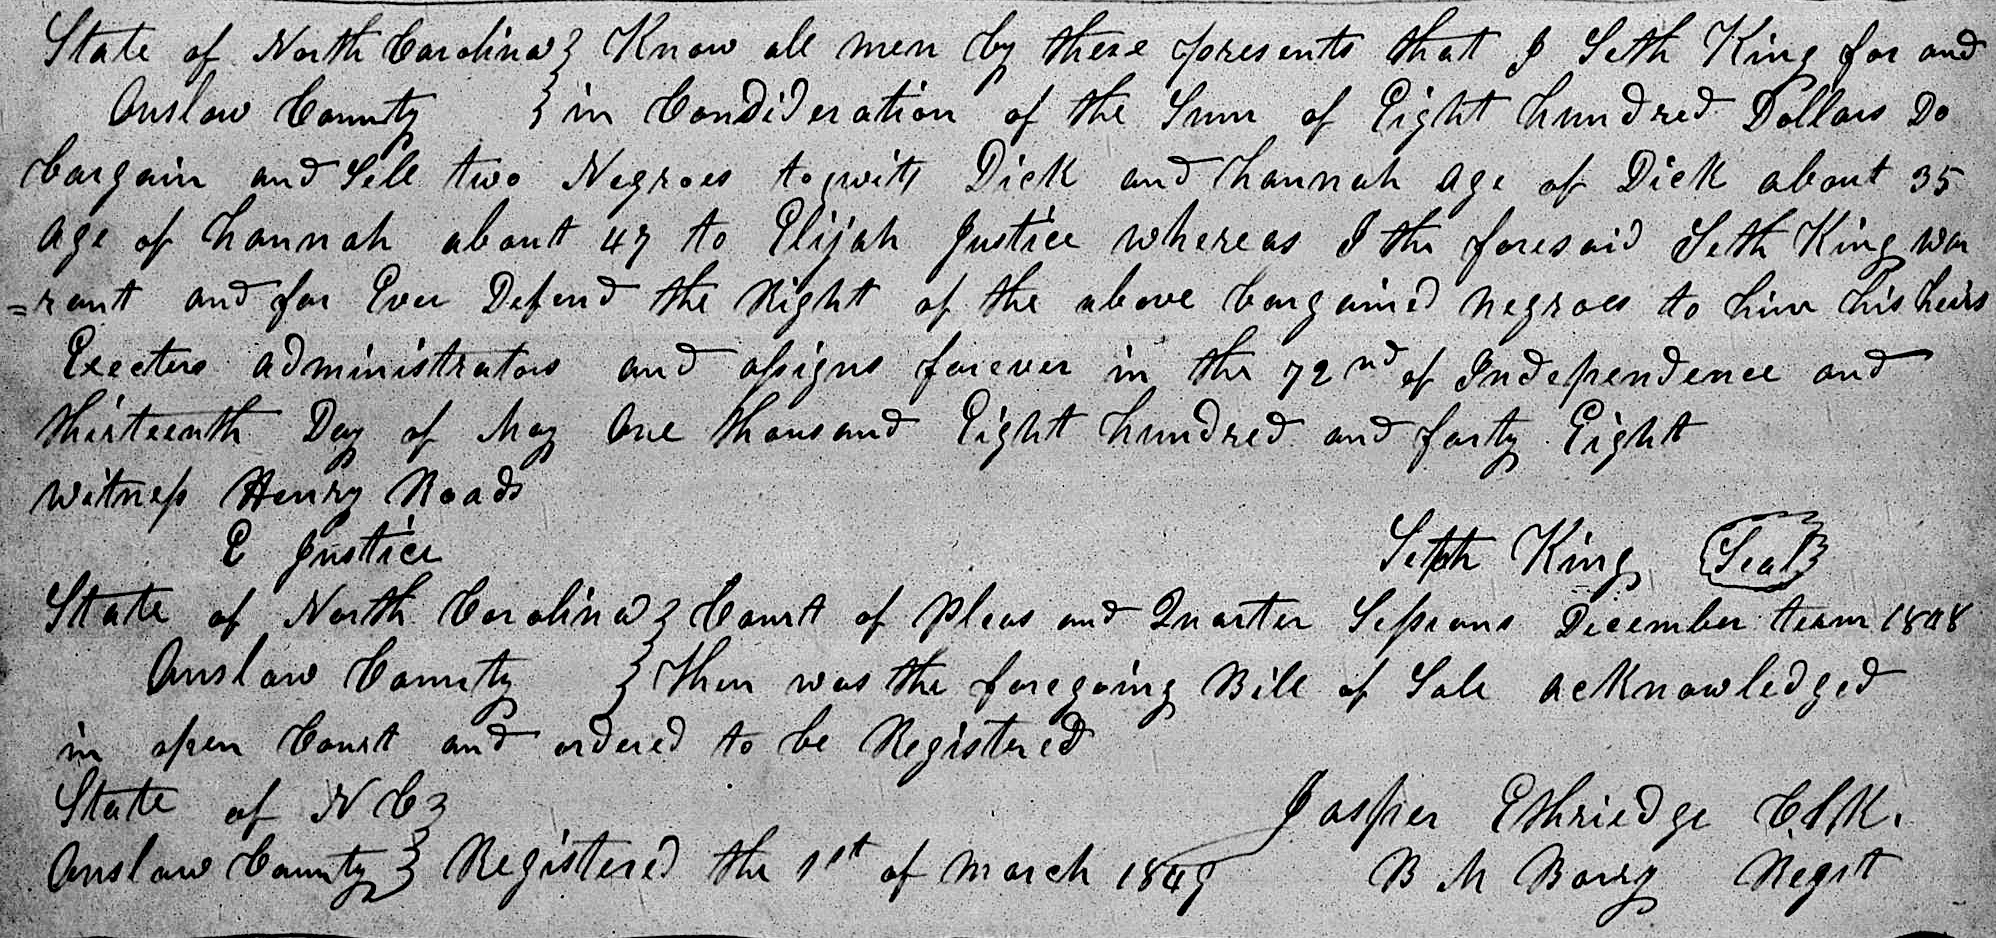 State of North Carolina } Know all men by these presents that I Seth King for and
Onslow County } in Consideration of the Sum of Eight hundred Dollars Do
bargain and Sell two Negroes to, wit, Dick and hannah age of Dick about 35
age of hannah about 47 to Elijah Justice whereas I the foresaid Seth King war
=rant and for Ever Defend the Right of the above bargained negroes to him his heirs
Execters administrators and assigns forever in the 72nd of Independence and
thirteenth Day of May One thousand Eight hundred and forty Eight
witness Henry Roads
E Justice
Seth King Seal
State of North Carolina } Court of Pleas and Quarter Sessions December team 1848
Onslow County } then was the foregoing Bill of Sale acknowledged
in open Court and ordered to be Registered
State of N C }
Jasper Ethriedge Clk.
Onslow County } Registered the 1st of March 1849
B M Regst